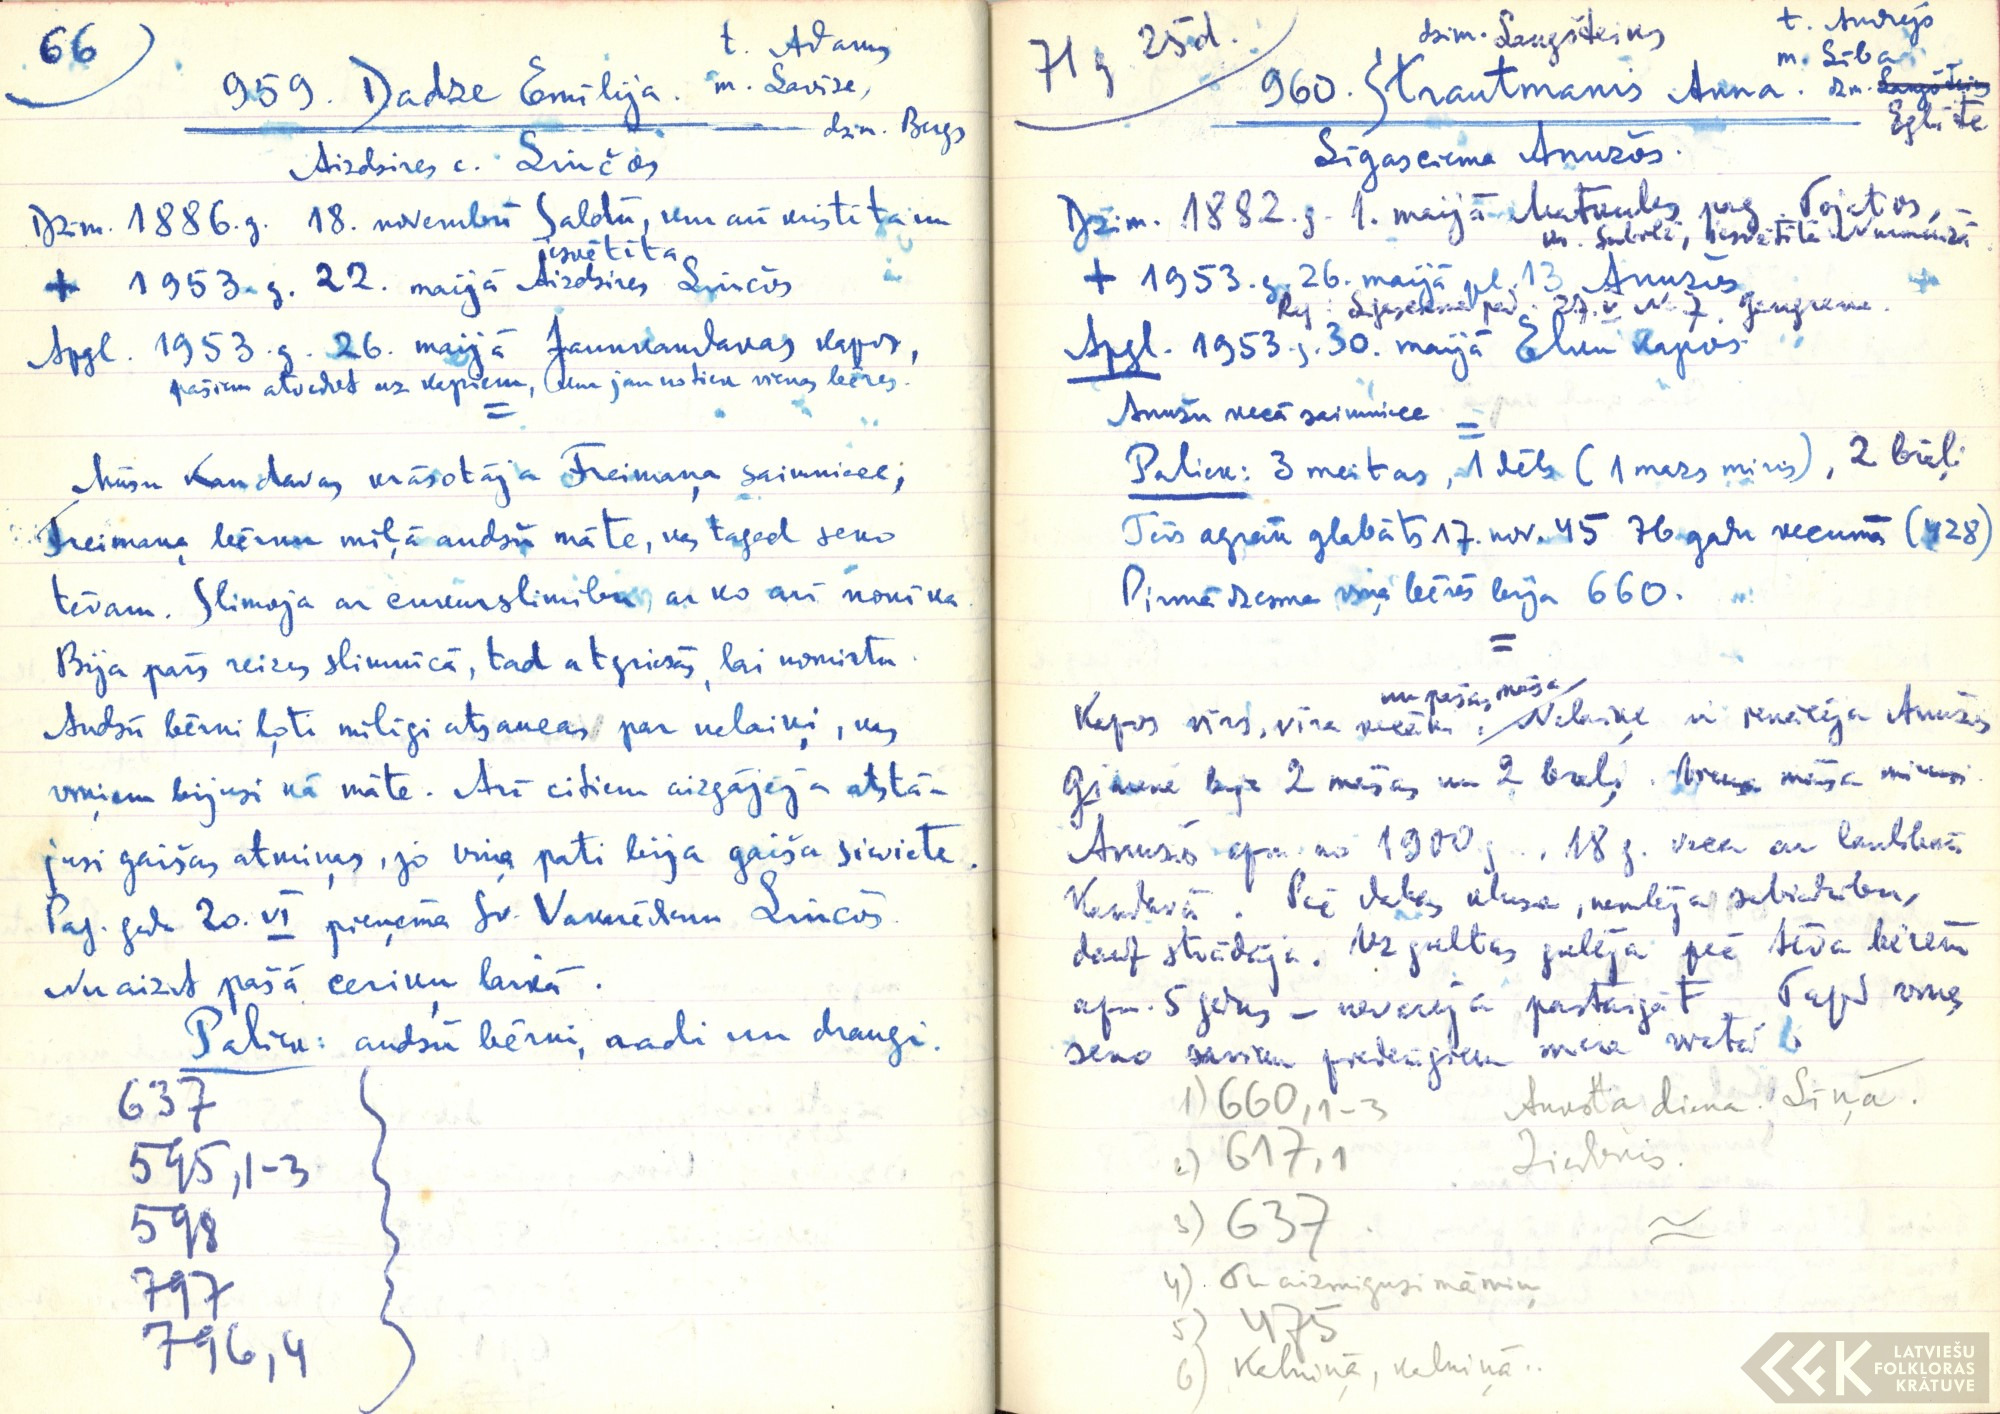 66
959. Dadze Emīlija.
t. Adams
m. Lavīze,
dzim. Bergs
Aizdzires c. Linčos
Dzim. 1886. g. 18. novembrī Saldū, kur arī kristīta un
iesvētīta
+ 1953. g. 22. maijā Aizdzires Linčos
Apgl. 1953. g. 26. maijā Jaunkandavas kapos,
pašiem atvedot uz kapiem, kur jau notiek vienas bēres.
=
Mūsu Kandavas krāsotāja Freimaņa saimniece,
Freimaņa bērnu mīļā audžu māte, kas tagad seko
tēvam. Slimoja ar cukurslimību, ar ko arī nonīka.
Bija pāris reizes slimnīcā, tad atgriezās, lai nomirtu.
Audžu bērni ļoti mīlīgi atsaucas par nelaiķi, kas
viņiem bijusi kā māte. Arī citiem aizgājēja atstā-
jusi gaišas atmiņas, jo viņa pati bija gaiša sieviete.
Pag. gada 20. VI pieņēma Sv. Vakarēdienu Linčos.
Nu aiziet pašā ceriņu laikā.
Paliek: audžu bērni, radi un draugi.
637
595,1-3
598
797
796,4
71 g 25d.
dzim. Laugšteins
960. Strautmanis Anna.
t. Andrejs
m. Lība
dzm. Laugšteins
Eglīte
Līgasciema Anužos.
Dzim. 1882. g. 1. maijā Matkules pag. Pojatos,
kr. Sabilē, iesvētīta
+ 1953. g. 26. maijā pl. 13 Anužos
Reģ: Līgasciema pad. 27. V № 7. Gangrena.
Apgl. 1953. g. 30. maijā Elku kapos
Anužu vecā saimniece
=
Paliek: 3 meitas, 1 dēls (1 mazs miris), 2 brāļi
Tēvs agrāk glabāts 17. nov. 45 76 gadu vecumā (428)
Pirmā dziesma viņa bērēs bija 660.
=
un pašas māsa
Kapos vīrs, vīra vecāki. Nelaiķe ir Anužos
Ģimenē bija 2 māsas un 2 brāļi. Viena māsa mirusi.
Anužos apm. no 1900 g., 18 g. veca ar laulībām
Kandavā. Pēc dabas klusa, nemīlēja sabiedrību,
daudz strādāja. Uz gultas gulēja pēc tēva bērēm
apm. 5 gadus – nevarēja pastaigāt. Tagad viņa
seko saviem piederīgiem vietā
1) 660,1-3 Auksta diena. Līņā.
2) 617,1 Ziedonis.
3) 637
4) Tu aizmigusi māmiņ
5) 475
6) Kalniņā, kalniņā..
LATVIEŠU
FOLKLORAS
KRĀTUVE